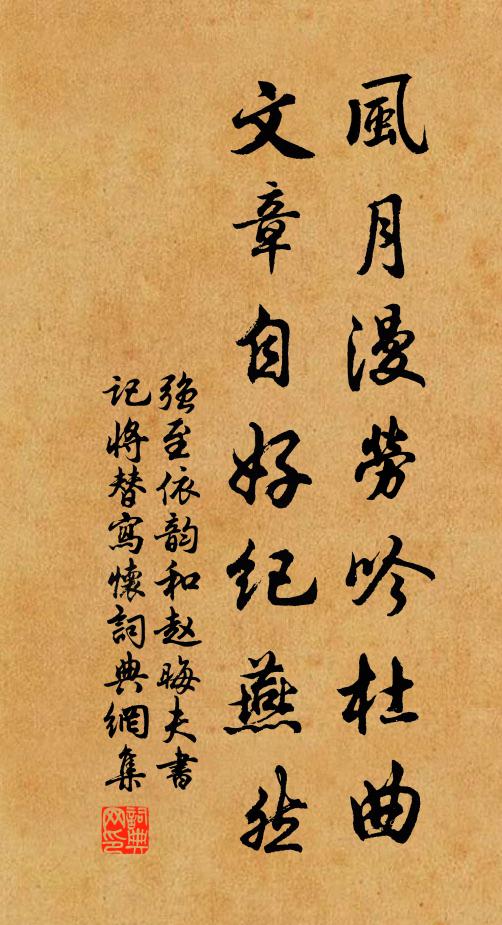 風月漫勞吟杜曲
文章自好紀燕然
強至依韵和赵晦夫書
记將替寫懷詞典網集
詞典网印